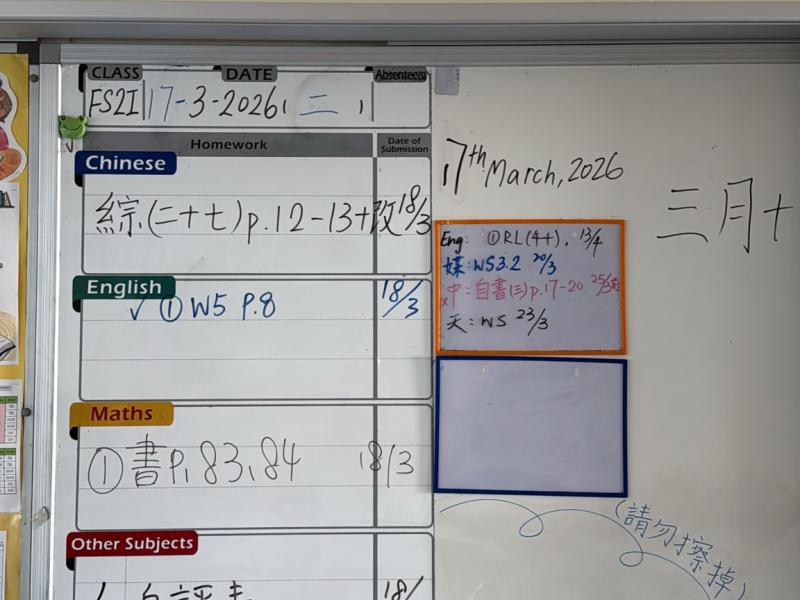 CLASS DATE Absentees
FS2I 17-3-2026 二
Homework Date of Submission
Chinese
綜(二十七)p.12-13+改 18/3
English
✓ ① W5 P.8 18/3
Maths
① 書P.83,84 18/3
Other Subjects
自評表 18/
17th March, 2026
三月十
Eng: ①RL(4+). 13/4
媒:WS3.2 20/3
中:自書(三)p.17-20 25/3前
天:WS 23/3
(請勿擦掉)